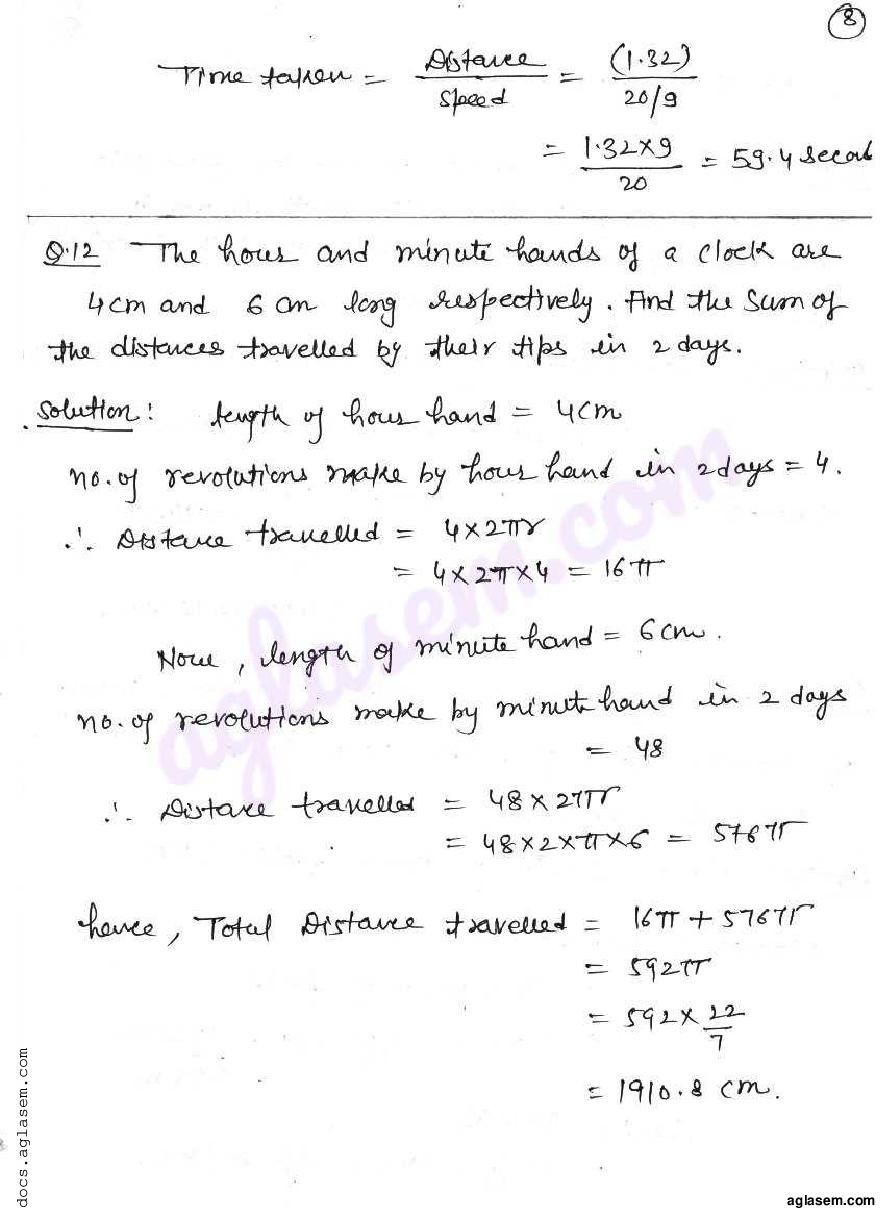 8
Time taken = Distance/Speed = (1.32)/(20/9)
= (1.32×9)/20 = 59.4 second
Q.12 The hour and minute hands of a clock are
4cm and 6 cm long respectively. Find the Sum of
the distances travelled by their tips in 2 days.
Solution: length of hour hand = 4cm
no. of revolutions make by hour hand in 2days = 4.
∴ Distance travelled = 4×2πr
= 4×2π×4 = 16π
Now, length of minute hand = 6cm.
no. of revolutions make by minute hand in 2 days
= 48
∴ Distance travelled = 48×2πr
= 48×2×π×6 = 576π
hence, Total Distance travelled = 16π + 576π
= 592π
= 592 × 22/7
= 1910.8 cm.
aglasem.com
docs.aglasem.com
aglasem.com